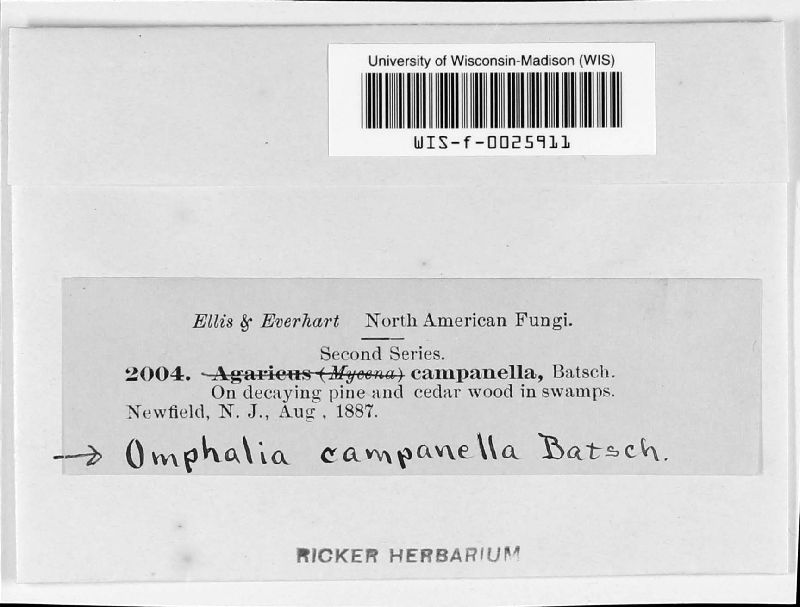 University of Wisconsin-Madison (WIS)
WIS-f-0025911
Ellis & Everhart North American Fungi.
Second Series.
2004. Agaricus (Mycena) campanella, Batsch.
On decaying pine and cedar wood in swamps.
Newfield, N. J., Aug , 1887.
→ Omphalia campanella Batsch.
RICKER HERBARIUM